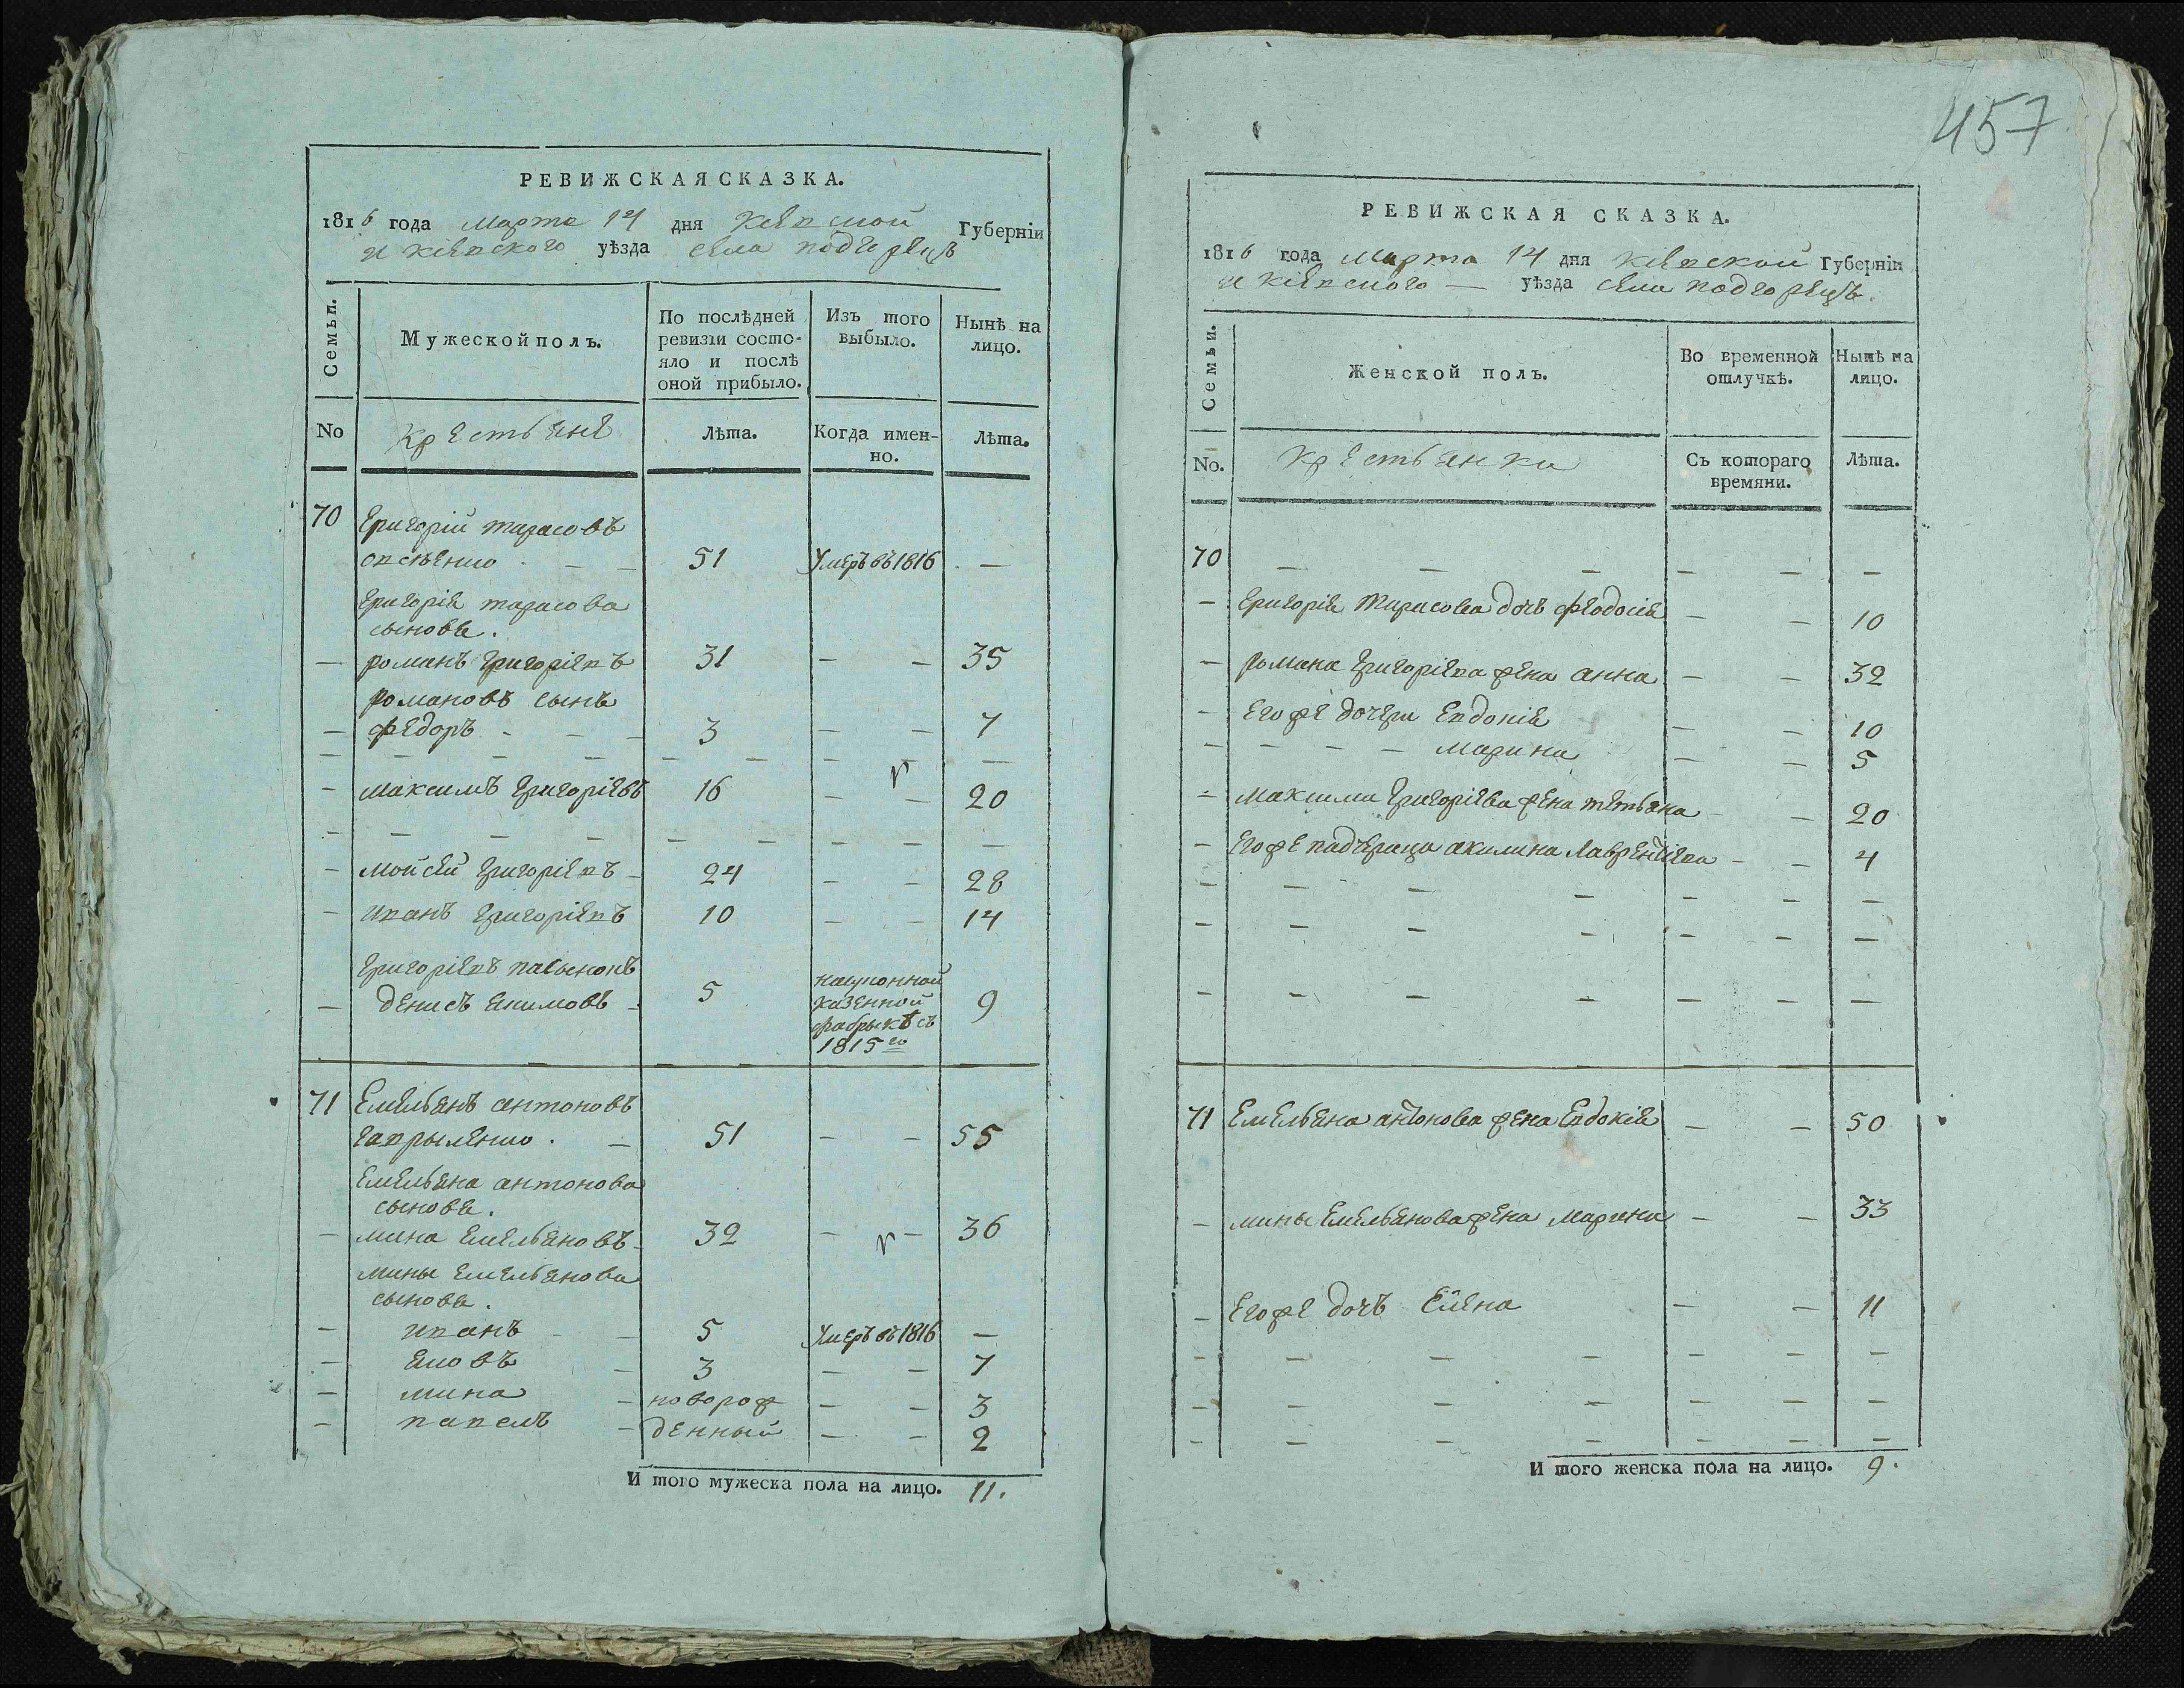 457
РЕВИЖСКАЯ СКАЗКА.
1816 года марта 14 дня Кіевской Губерніи
и Кіевского уѣзда села подгорецъ
Семьи.
Мужеской полъ.
По послѣдней ревизіи состояло и послѣ оной прибыло.
Изъ того выбыло.
Нынѣ на лицо.
No
Крестьяне
Лѣта.
Когда именно.
Лѣта.
70 Григорій тарасовъ
51 Умеръ въ 1816 —
Григорія тарасова
сыновья.
— романъ Григоріевъ 31 — — 35
романовъ сынъ
— федоръ 3 — — 7
— максимъ Григоріевъ 16 — — 20
— мойсей Григоріевъ 24 — — 28
— иванъ Григоріевъ 10 — — 14
Григоріевъ пасынокъ
— денисъ якимовъ 5
казенной
фабрыкѣ съ
1815го
9
71 Емельянъ антоновъ
гаврыленко 51 — — 55
Емельяна антонова
сыновья.
— мина Емельяновъ 32 — — 36
мины Емельянова
сыновья.
— иванъ 5 Умеръ въ 1816 —
— яковъ 3 — — 7
— мина новорож — — 3
— павелъ денный — — 2
И того мужеска пола на лицо. 11.
РЕВИЖСКАЯ СКАЗКА.
1816 года марта 14 дня Кіевской Губерніи
и Кіевского — уѣзда села подгорецъ.
Семьи.
Женской полъ.
Во временной отлучкѣ.
Нынѣ на лицо.
No.
Крестьянки
Съ котораго времяни.
Лѣта.
70 — — — — — —
— Григорія Тарасова дочь феодосія — — 10
— романа Григоріева жена анна — — 32
— Его же дочери Евдокія — — 10
— — — — марина — — 5
— максима Григоріева жена тетьяна — — 20
— Его же падчерица акилина Лаврентіева — — 4
71 Емельяна антонова жена Евдокія — — 50
— мины Емельянова жена марина — — 33
— Его же дочь Елена — — 11
И того женска пола на лицо. 9.